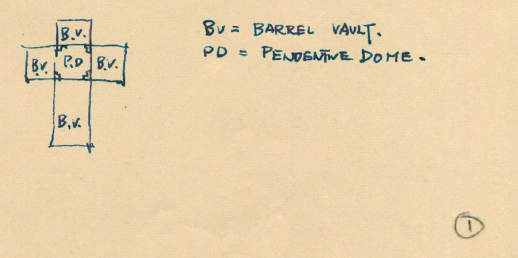 B.V.
B.V. P.D B.V.
B.V.
BV = BARREL VAULT.
PD = PENDENTIVE DOME.
1